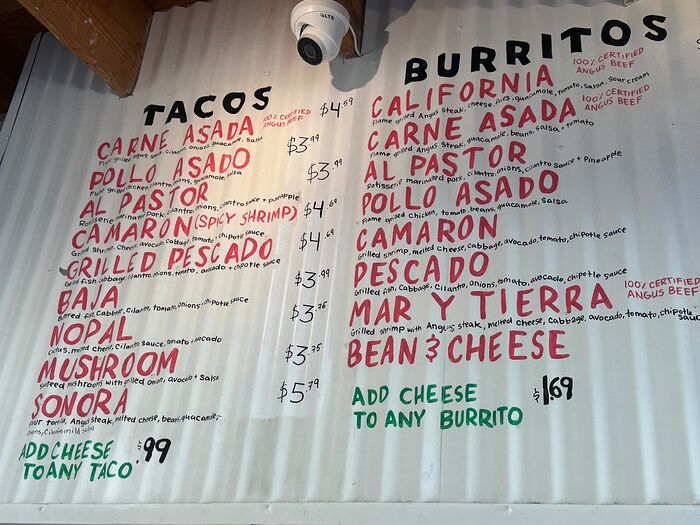 LTS
TACOS
CARNE ASADA 100% CERTIFIED ANGUS BEEF $4.59
Flame grilled Angus steak, cilantro, onions, guacamole, salsa
POLLO ASADO $3.99
Flame grilled chicken, cilantro, onions, guacamole, salsa
AL PASTOR $3.99
Rotisserie marinated Pork, cilantro, onions, cilantro sauce + pineapple
CAMARON (SPICY SHRIMP) $4.69
Grilled Shrimp, Cheese, avocado, Cabbage, tomato, chipotle sauce
GRILLED PESCADO $4.69
Grilled Fish, cabbage, cilantro, onions, tomato, avocado + chipotle sauce
BAJA $3.99
Battered fish, Cabbage, Cilantro, tomato, onions, chipotle sauce
NOPAL $3.75
Cactus, melted cheese, Cilantro sauce, tomato + avocado
MUSHROOM $3.75
Sauteed mushrooms with grilled onion, avocado + Salsa
SONORA $5.79
Flour tortilla, Angus steak, melted cheese, beans, guacamole,
Onions, Cilantro, mild salsa
ADD CHEESE
TO ANY TACO $.99
BURRITOS
CALIFORNIA 100% CERTIFIED ANGUS BEEF
Flame grilled Angus steak, cheese, fries, guacamole, tomato, salsa, sour cream
CARNE ASADA 100% CERTIFIED ANGUS BEEF
Flame grilled Angus Steak, guacamole, beans, salsa + tomato
AL PASTOR
Rotisserie marinated pork, cilantro, onions, cilantro Sauce + Pineapple
POLLO ASADO
Flame grilled chicken, tomato, beans, guacamole, salsa
CAMARON
Grilled shrimp, melted cheese, cabbage, avocado, tomato, chipotle sauce
PESCADO
Grilled fish, cabbage, Cilantro, onions, tomato, avocado, chipotle sauce
MAR Y TIERRA 100% CERTIFIED ANGUS BEEF
Grilled shrimp with Angus steak, melted cheese, Cabbage, avocado, tomato, chipotle sauce
BEAN & CHEESE
ADD CHEESE
TO ANY BURRITO $1.69